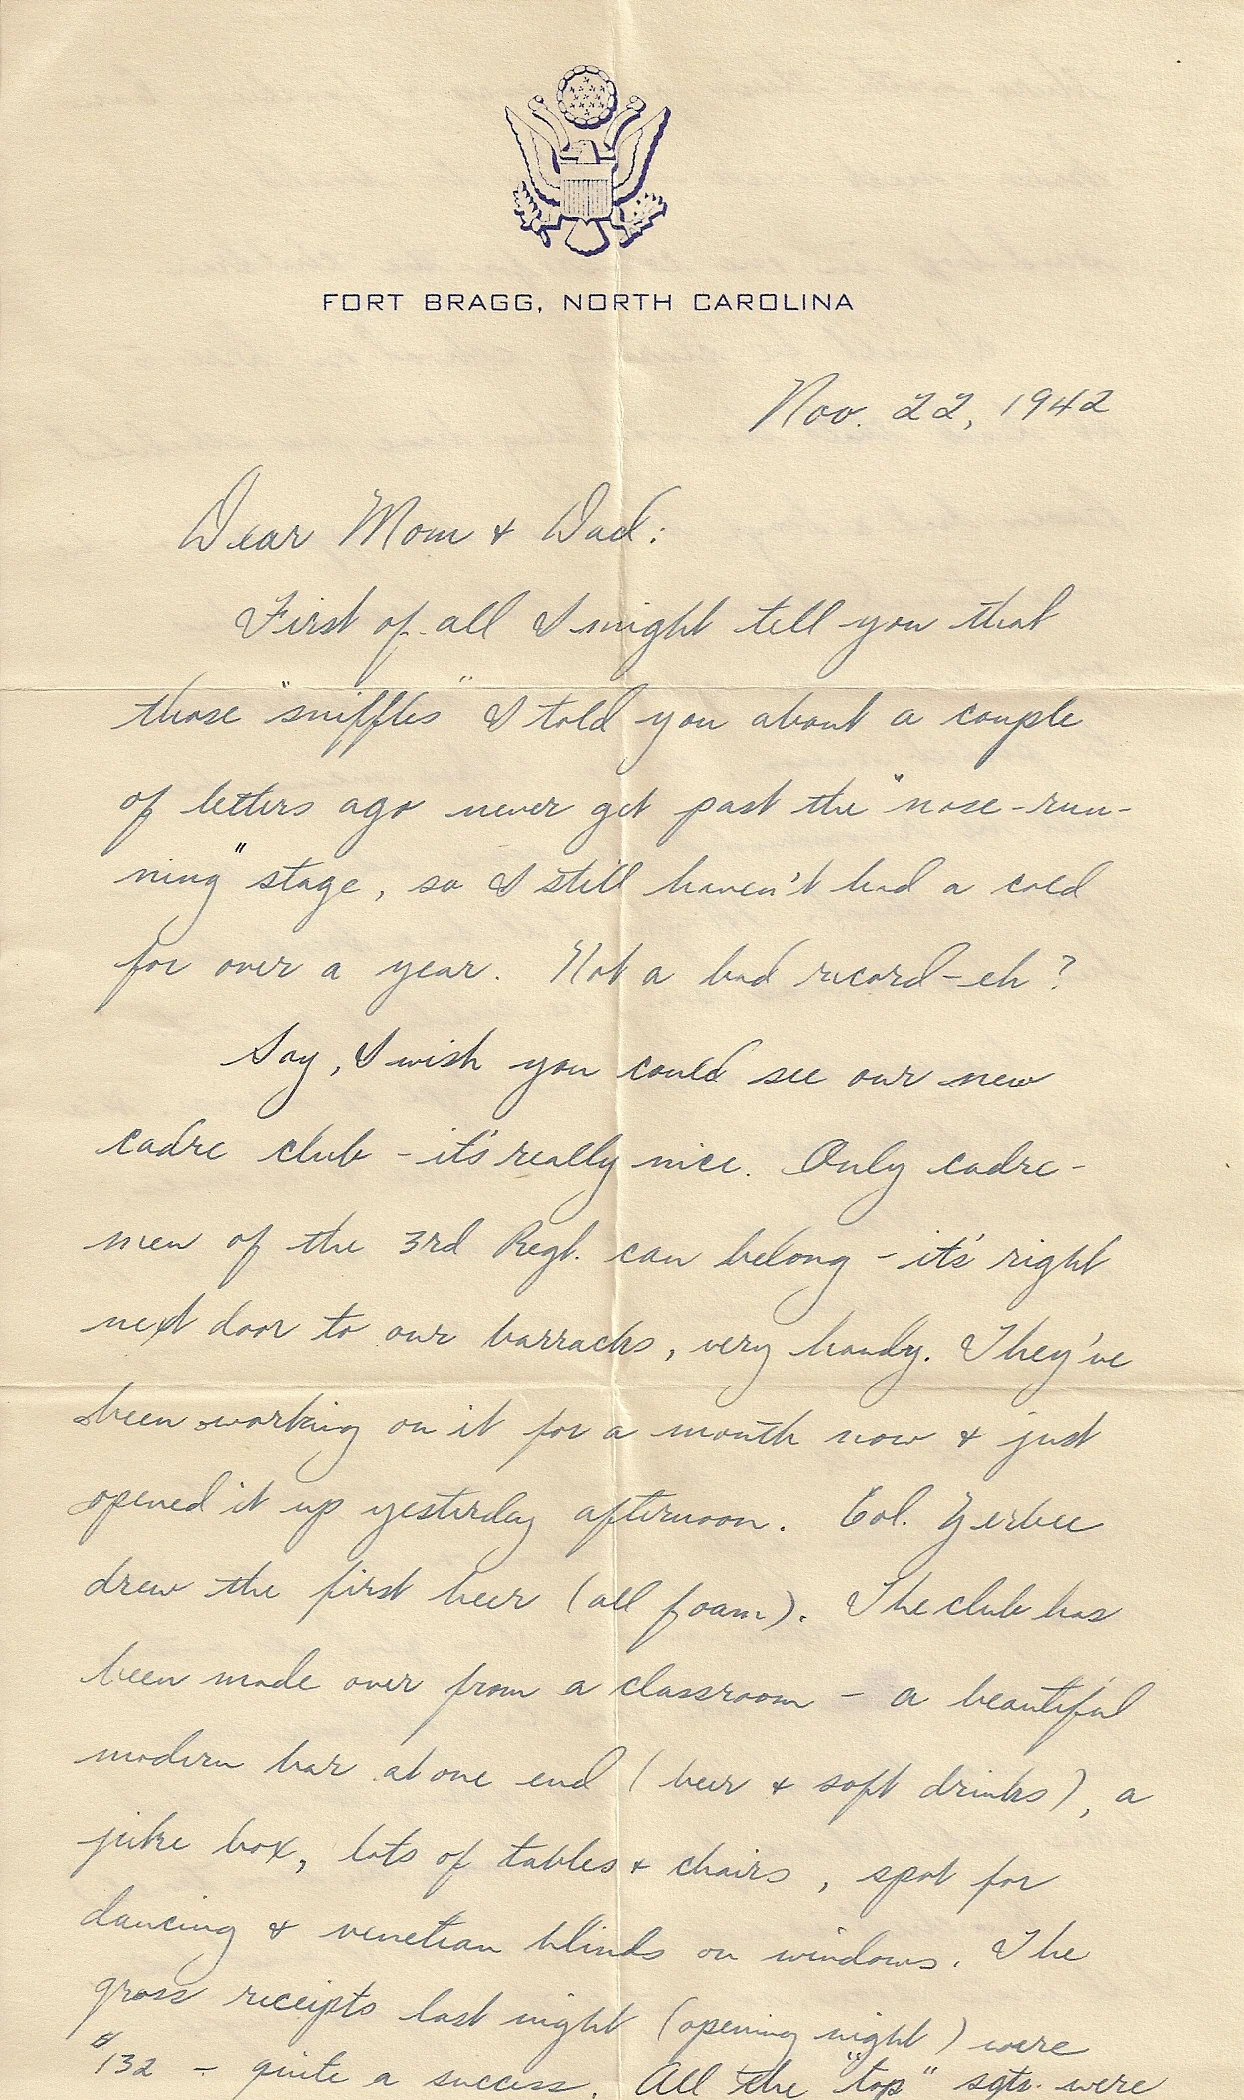 FORT BRAGG, NORTH CAROLINA
Nov. 22, 1942
Dear Mom & Dad:
First of all I might tell you that
those "sniffles" I told you about a couple
of letters ago never get past the "nose-run-
ning" stage, so I still haven't had a cold
for over a year. Not a bad record-eh?
Say, I wish you could see our new
cadre club - it's really nice. Only cadre-
men of the 3rd Regt. can belong - it's right
next door to our barracks, very handy. They've
been working on it for a month now & just
opened it up yesterday afternoon. Col. Zerbee
drew the first beer (all foam). The club has
been made over from a classroom - a beautiful
modern bar at one end (beer & soft drinks), a
juke box, lots of tables & chairs, spot for
dancing & venetian blinds on windows. The
gross receipts last night (opening night) were
$132 - quite a success. All the "top" sgts. were